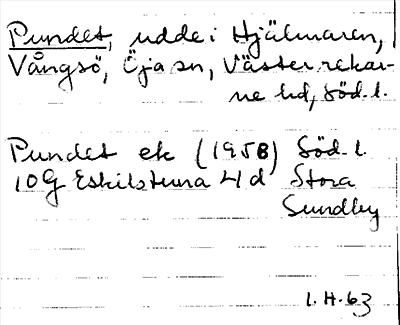 Pundet, udde i Hjälmaren,
Vångsö, Öja sn, Västerrekar-
ne hd, Söd. l.
Pundet ek (1958) Söd. l.
10G Eskilstuna 4 d Stora
Sundby
I. H. 63